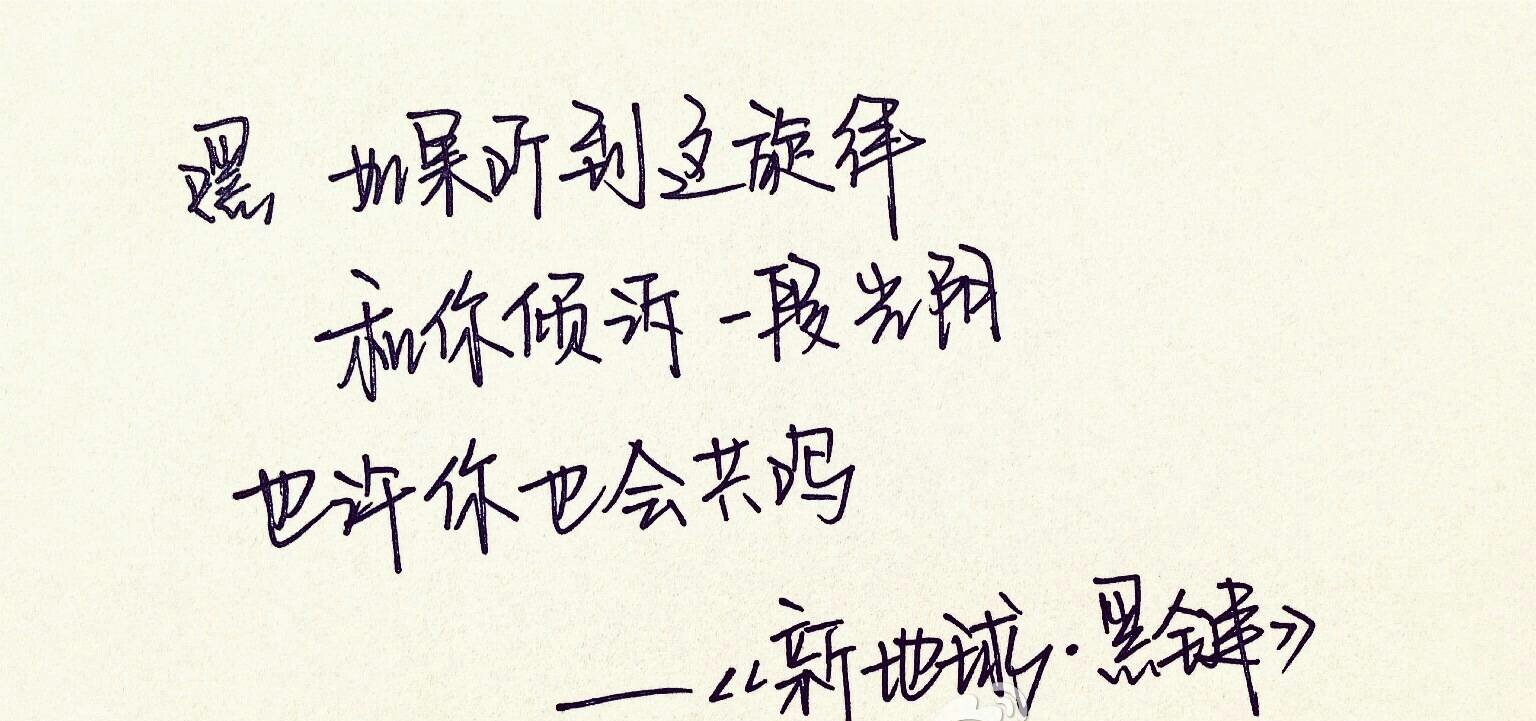 嘿 如果听到这旋律
和你倾诉一段光阴
也许你也会共鸣
——《新地球·黑键》